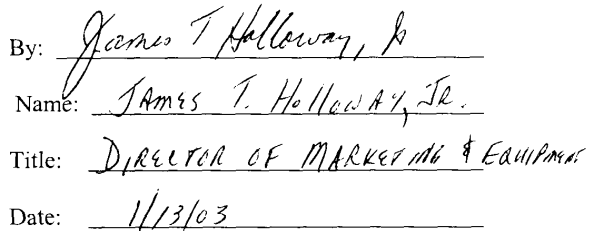 By: James T Holloway, Jr
Name: JAMES T. HOLLOWAY, JR.
Title: DIRECTOR OF MARKETING & EQUIPMENT
Date: 1/13/03